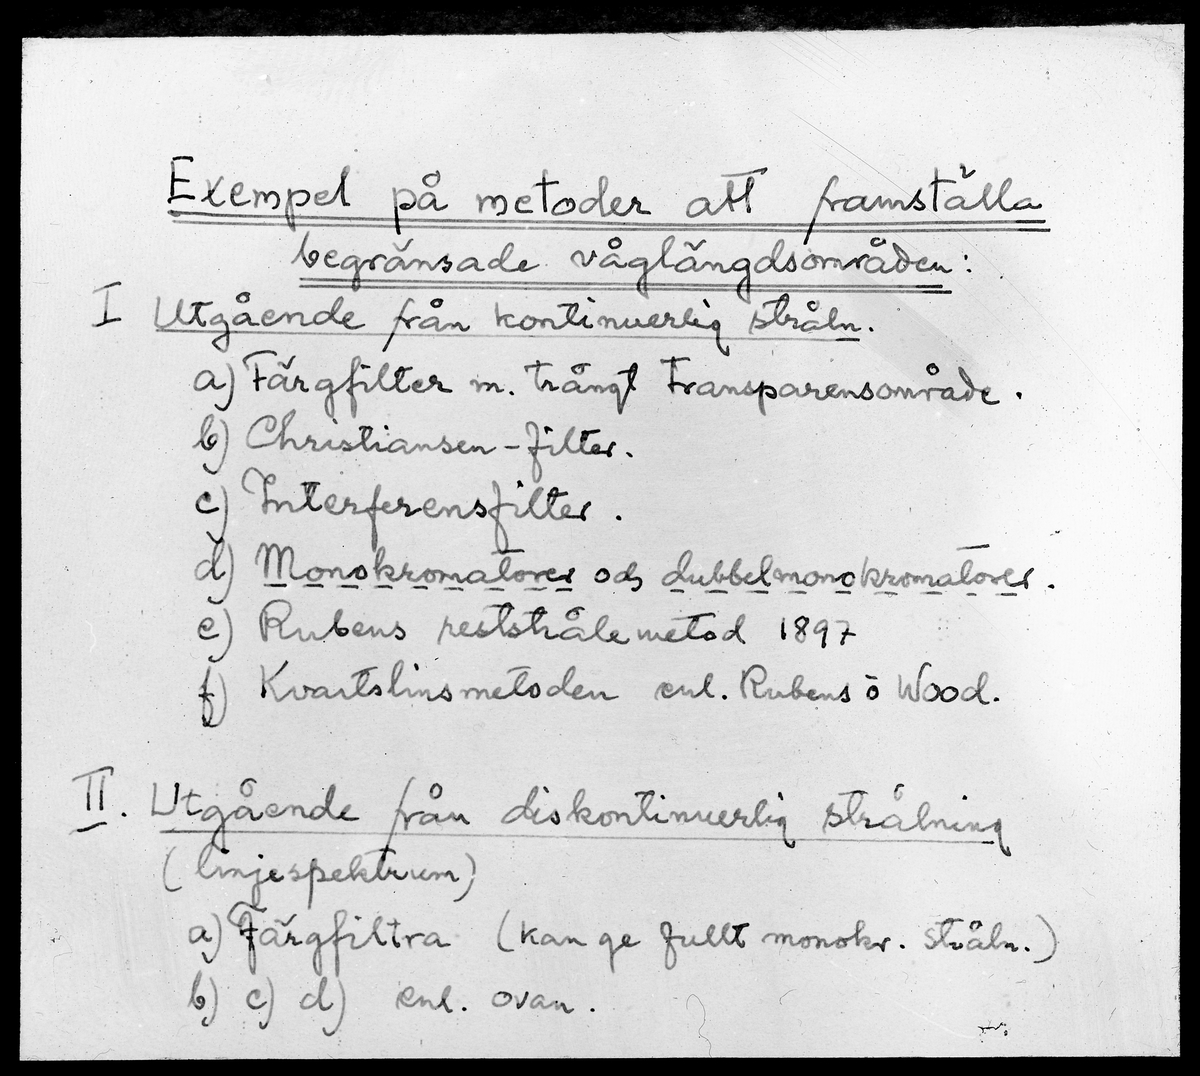 Exempel på metoder att framställa
begränsade våglängdsområden:
I Utgående från kontinuerlig stråln.
a) Färgfilter m. trångt transparensområde.
b) Christiansen-filter.
c) Interferensfilter.
d) Monokromatorer och dubbelmonokromatorer.
e) Rubens reststrålemetod 1897
f) Kvartslinsmetoden enl. Rubens o Wood.
II. Utgående från diskontinuerlig strålning
(linjespektrum)
a) Färgfiltra (kan ge fullt monokr. stråln.)
b) c) d) enl. ovan.